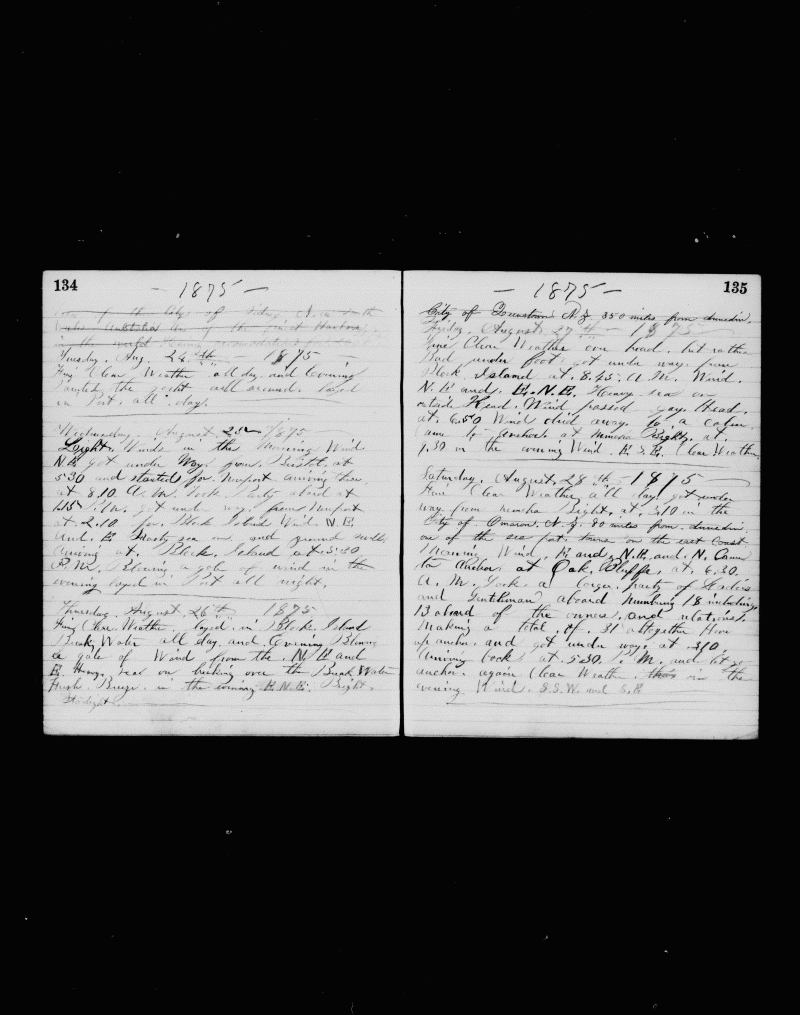 134
- 1875 -
of the City of
Australia one of the Harbors
in the world
Tuesday, Aug. 24th 1875 -
Fine Clear Weather all day and Evening
painted the yacht all around. Layed
in Port all day.
Wednesday, August 25th 1875
Light Winds in the Morning Wind
N.E. got under Way from Bristol at
5.30 and started for Newport arriving there
at 8.10 A.M. Took Party aboard at
1.15 P.M. got under way from Newport
at 2.10 for Block Island Wind N.E.
and E. Heavy sea on and ground swell
Ariving at Block Island at 5.30
P.M. Blowing a gale of wind in the
evening layed in Port all night.
Thursday, August 26th 1875
Fine Clear Weather layed in Block Island
Break Water all day and Evening Blowing
a gale of Wind from the N.E. and
E. Heavy sea on breaking over the Break Water
Fresh Breeze in the evening E.N.E. Bright
Starlight
135
- 1875 -
City of Queenstown N.Z. 350 miles from dunedin.
Friday, August 27th - 1875 -
Fine Clear Weather over head. but rather
Bad under foot got under way from
Block Island at 8.45 A.M. Wind
N.E. and E.N.E. Heavy sea on
outside Head Wind passed Gay Head
at 6.50 Wind died away to a calm
came to anchor at Menemsha Bight at
7.30 in the evening Wind E.S.E. Clear Weather
Saturday, August 28th - 1875 -
Fine Clear Weather all day got under
way from Menemsha Bight at 3.10 in the
City of Omaron N.Z. 80 miles from dunedin
one of the sea port towns on the east Coast
Morning Wind, E and N.E. and N. Came
to Anchor at Oak Bluffs at 6.30
A.M. Took a large party of Ladies
and Gentleman aboard Numbring 18 including
13 aboard of the owners and relations
Making a total of 31 altogether Hove
up anchor and got under way at 3.10
Ariving back at 5.30 P.M. and let go
anchor again Clear Weather in the
evening Wind S.S.W. and S.E.